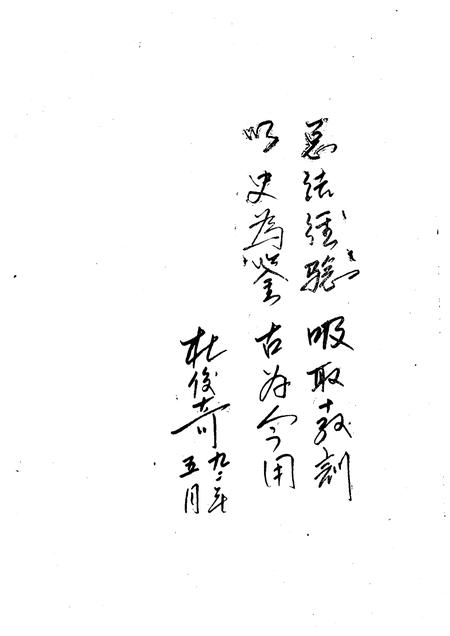 总结經驗 吸取教訓
以史為鉴 古为今用
杜俊奇
九二年
五月